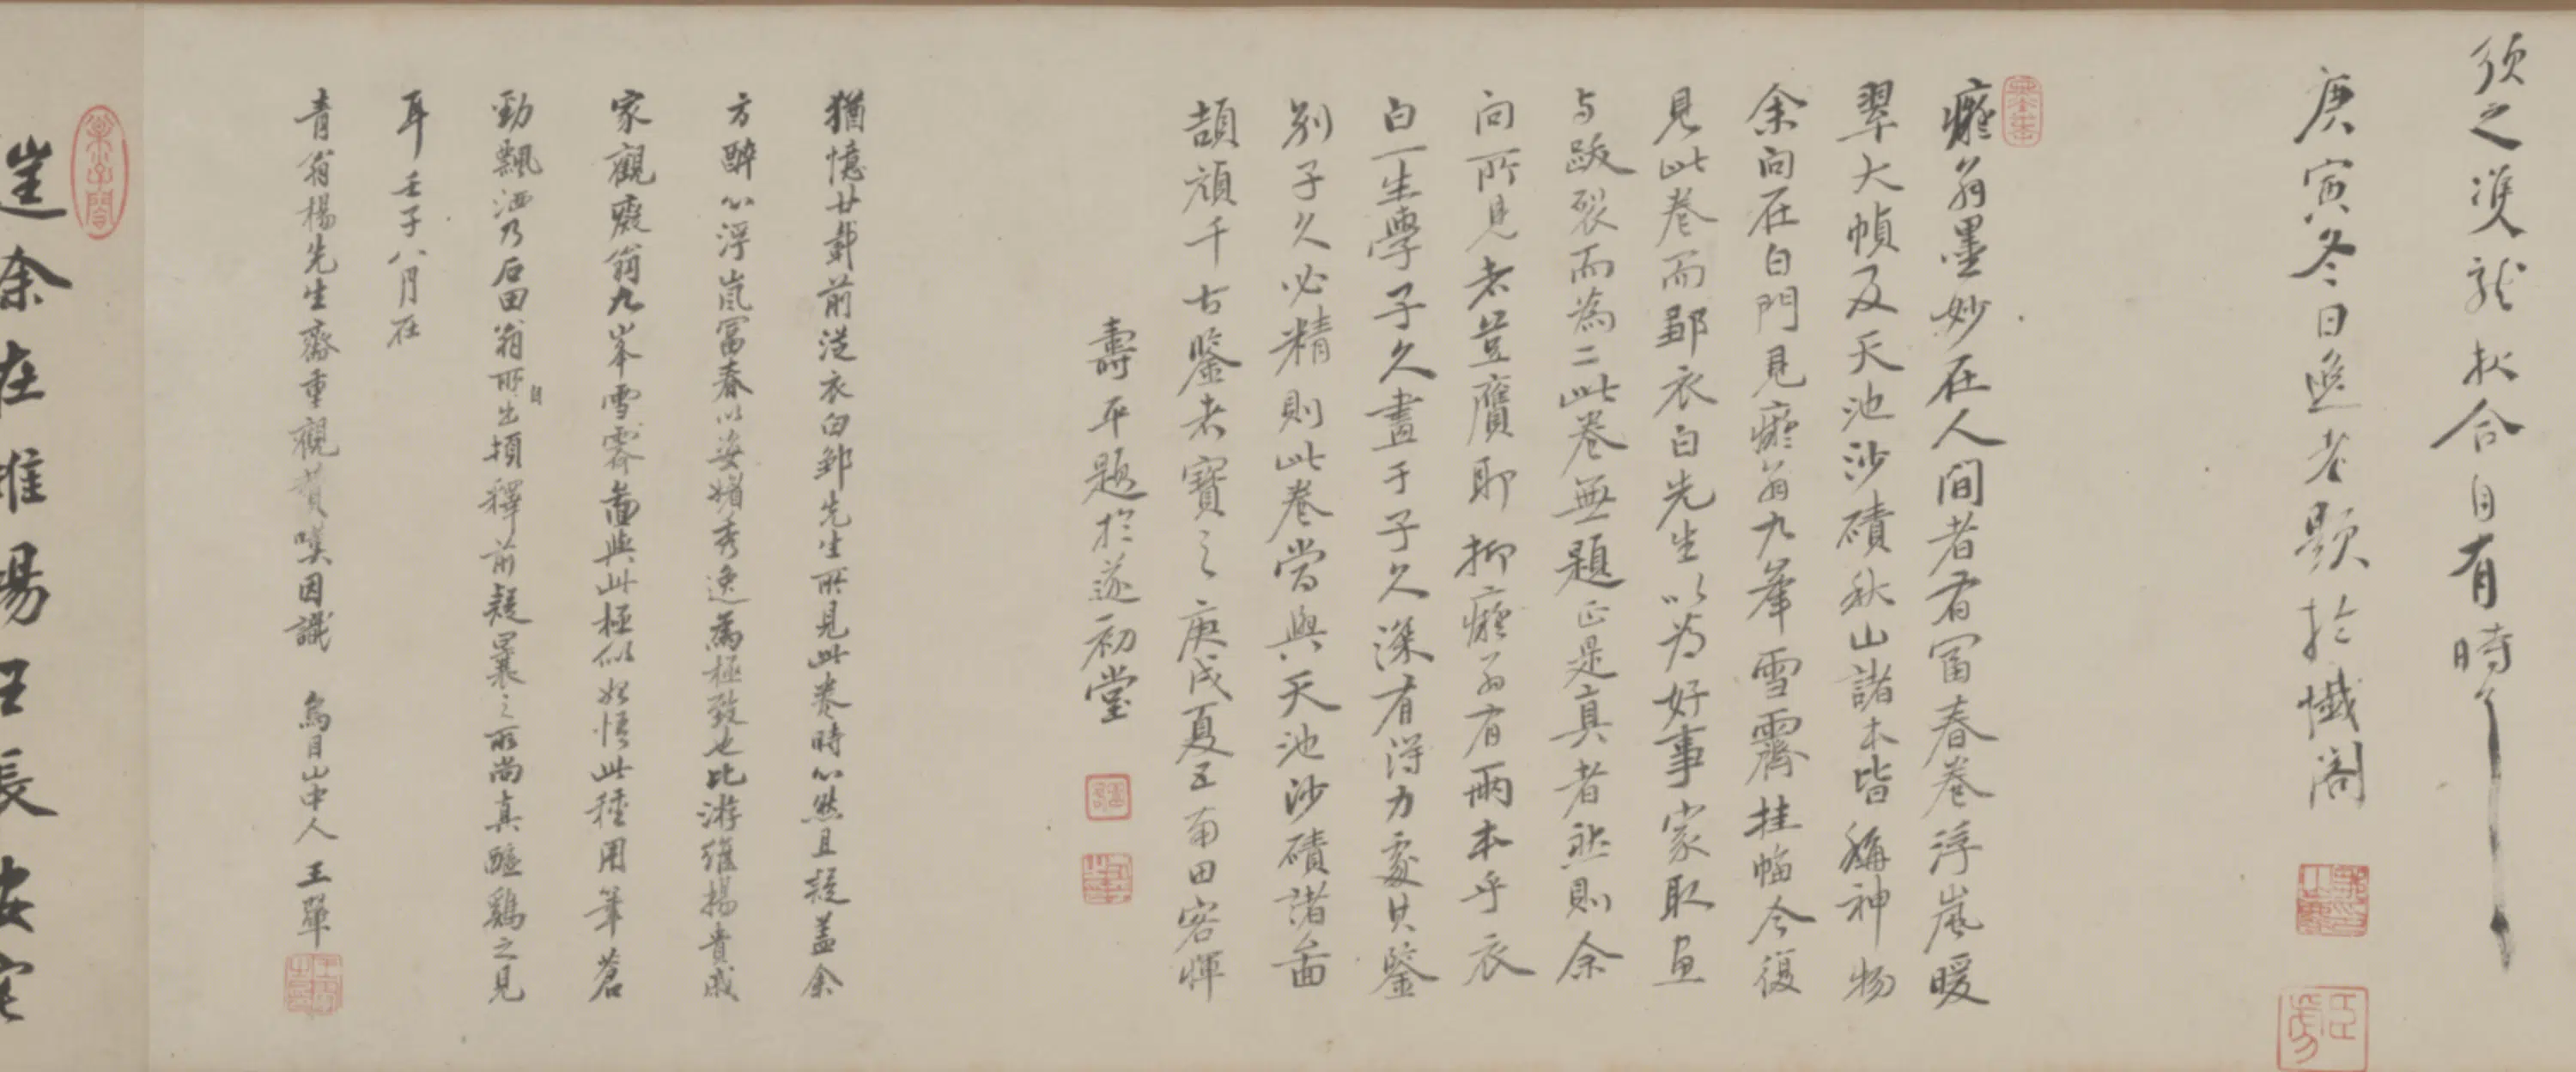 須之雙龍劍合自有時
庚寅冬日逸老題於懺閣
癡翁墨妙在人間者有富春卷浮嵐暖
翠大幀及天池沙磧秋山諸本皆稱神物
余向在白門見癡翁九峯雪霽挂幅今復
見此卷而鄒衣白先生以為好事家取畫
与跋裂而為二此卷無題正是真者然則余
向所見者豈贋耶抑癡翁有兩本乎衣
白一生學子久畫于子久深有得力處其鑒
别子久必精則此卷當與天池沙磧諸圖
頡頏千古鑒者寶之庚戌夏五南田客惲
壽平題於遂初堂
猶憶廿載前從衣白鄒先生所見此卷時心然且疑蓋余
方醉心浮嵐富春以姿媚秀逸為極致也比游維揚貴戚
家觀癡翁九峯雪霽圖與此極似始悟此種用筆蒼
勁飄洒乃石田翁所自出頓釋前疑曩之所尚真醯鷄之見
耳壬子八月在
青翁楊先生齋重觀賛嘆因識 烏目山中人王翬
余在維揚王長安宅